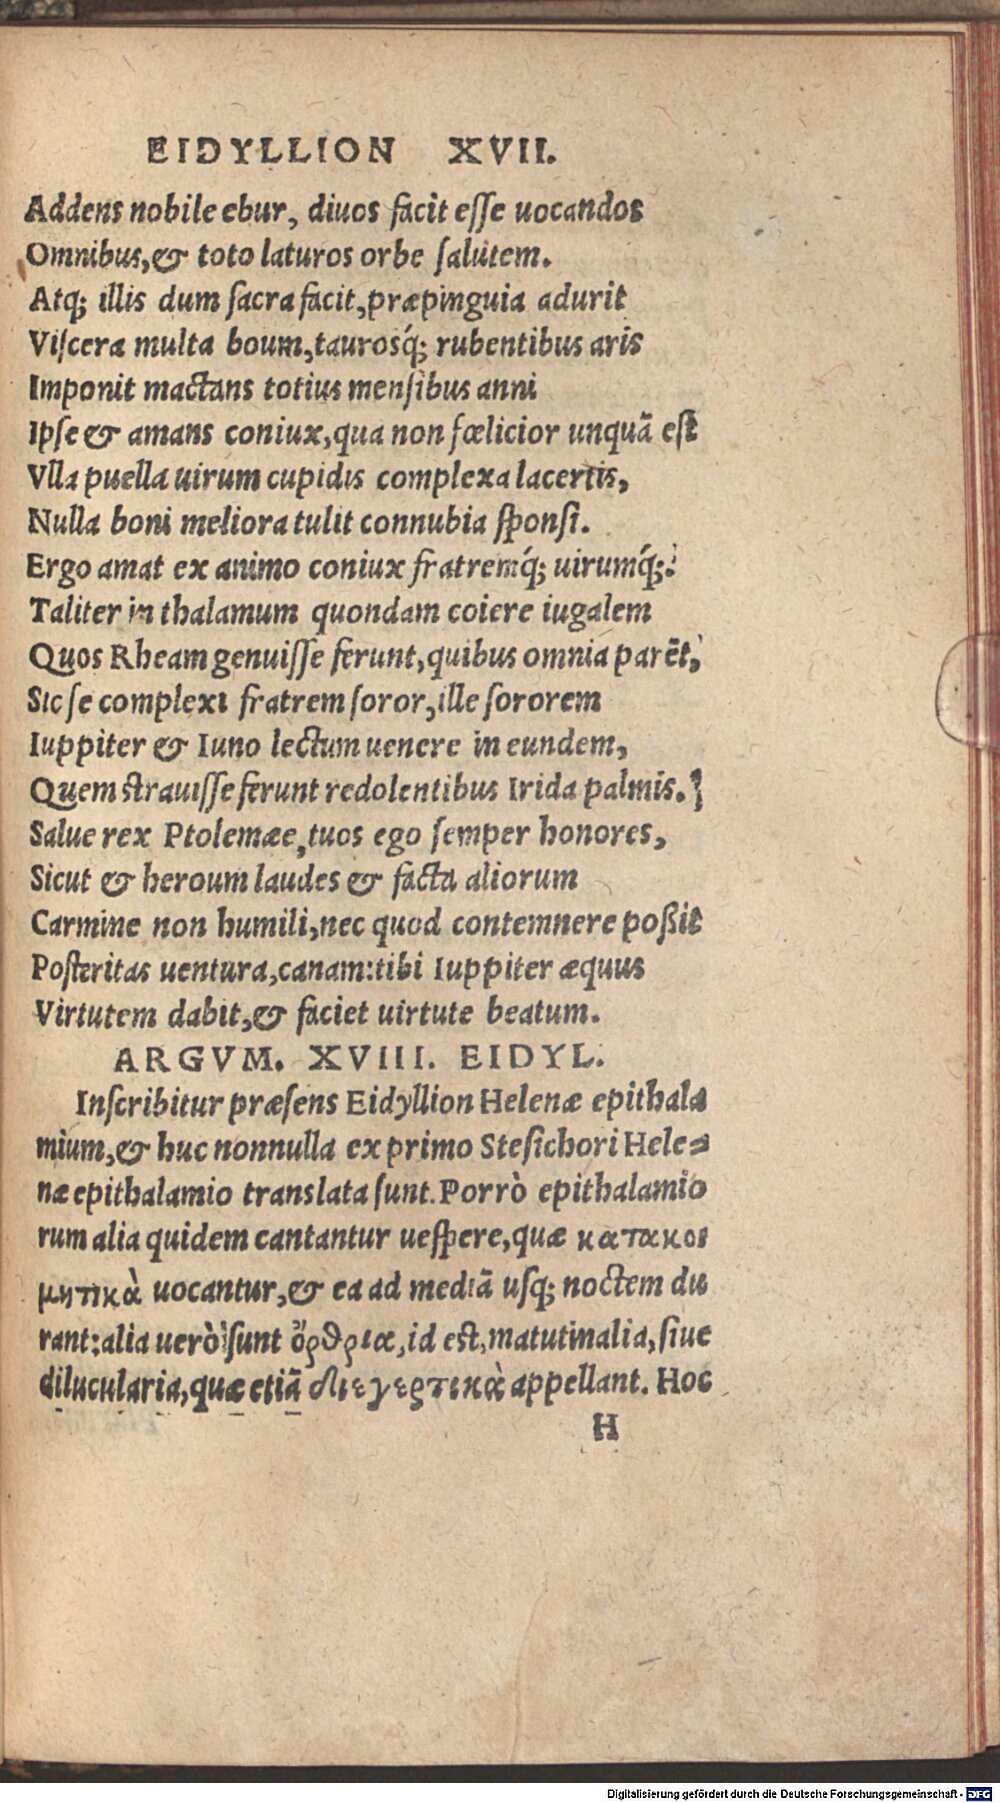 EIDYLLION XVII.
Addens nobile ebur, diuos facit esse uocandos
Omnibus, & toto laturos orbe salutem.
Atq; illis dum sacra facit, præpinguia adurit
Viscera multa boum, taurosq́; rubentibus aris
Imponit mactans totius mensibus anni
Ipse & amans coniux, qua non fœlicior unquã est
Vlla puella uirum cupidis complexa lacertis,
Nulla boni meliora tulit connubia sponsi.
Ergo amat ex animo coniux fratremq́; uirumq́;:
Taliter in thalamum quondam coiere iugalem
Quos Rheam genuisse ferunt, quibus omnia parẽt,
Sic se complexi fratrem soror, ille sororem
Iuppiter & Iuno lectum uenere in eundem,
Quem strauisse ferunt redolentibus Irida palmis.
Salue rex Ptolemæe, tuos ego semper honores,
Sicut & heroum laudes & facta aliorum
Carmine non humili, nec quod contemnere poßit
Posteritas uentura, canam: tibi Iuppiter æquus
Virtutem dabit, & faciet uirtute beatum.
ARGVM. XVIII. EIDYL.
Inscribitur præsens Eidyllion Helenæ epithala
mium, & huc nonnulla ex primo Stesichori Hele=
næ epithalamio translata sunt. Porrò epithalamio
rum alia quidem cantantur uespere, quæ κατακοι
μητικὰ uocantur, & ea ad mediã usq; noctem du
rant: alia uerò sunt ὄρθρια, id est, matutinalia, siue
dilucularia, quæ etiã διεγερτικὰ appellant. Hoc
H
Digitalisierung gefördert durch die Deutsche Forschungsgemeinschaft - DFG